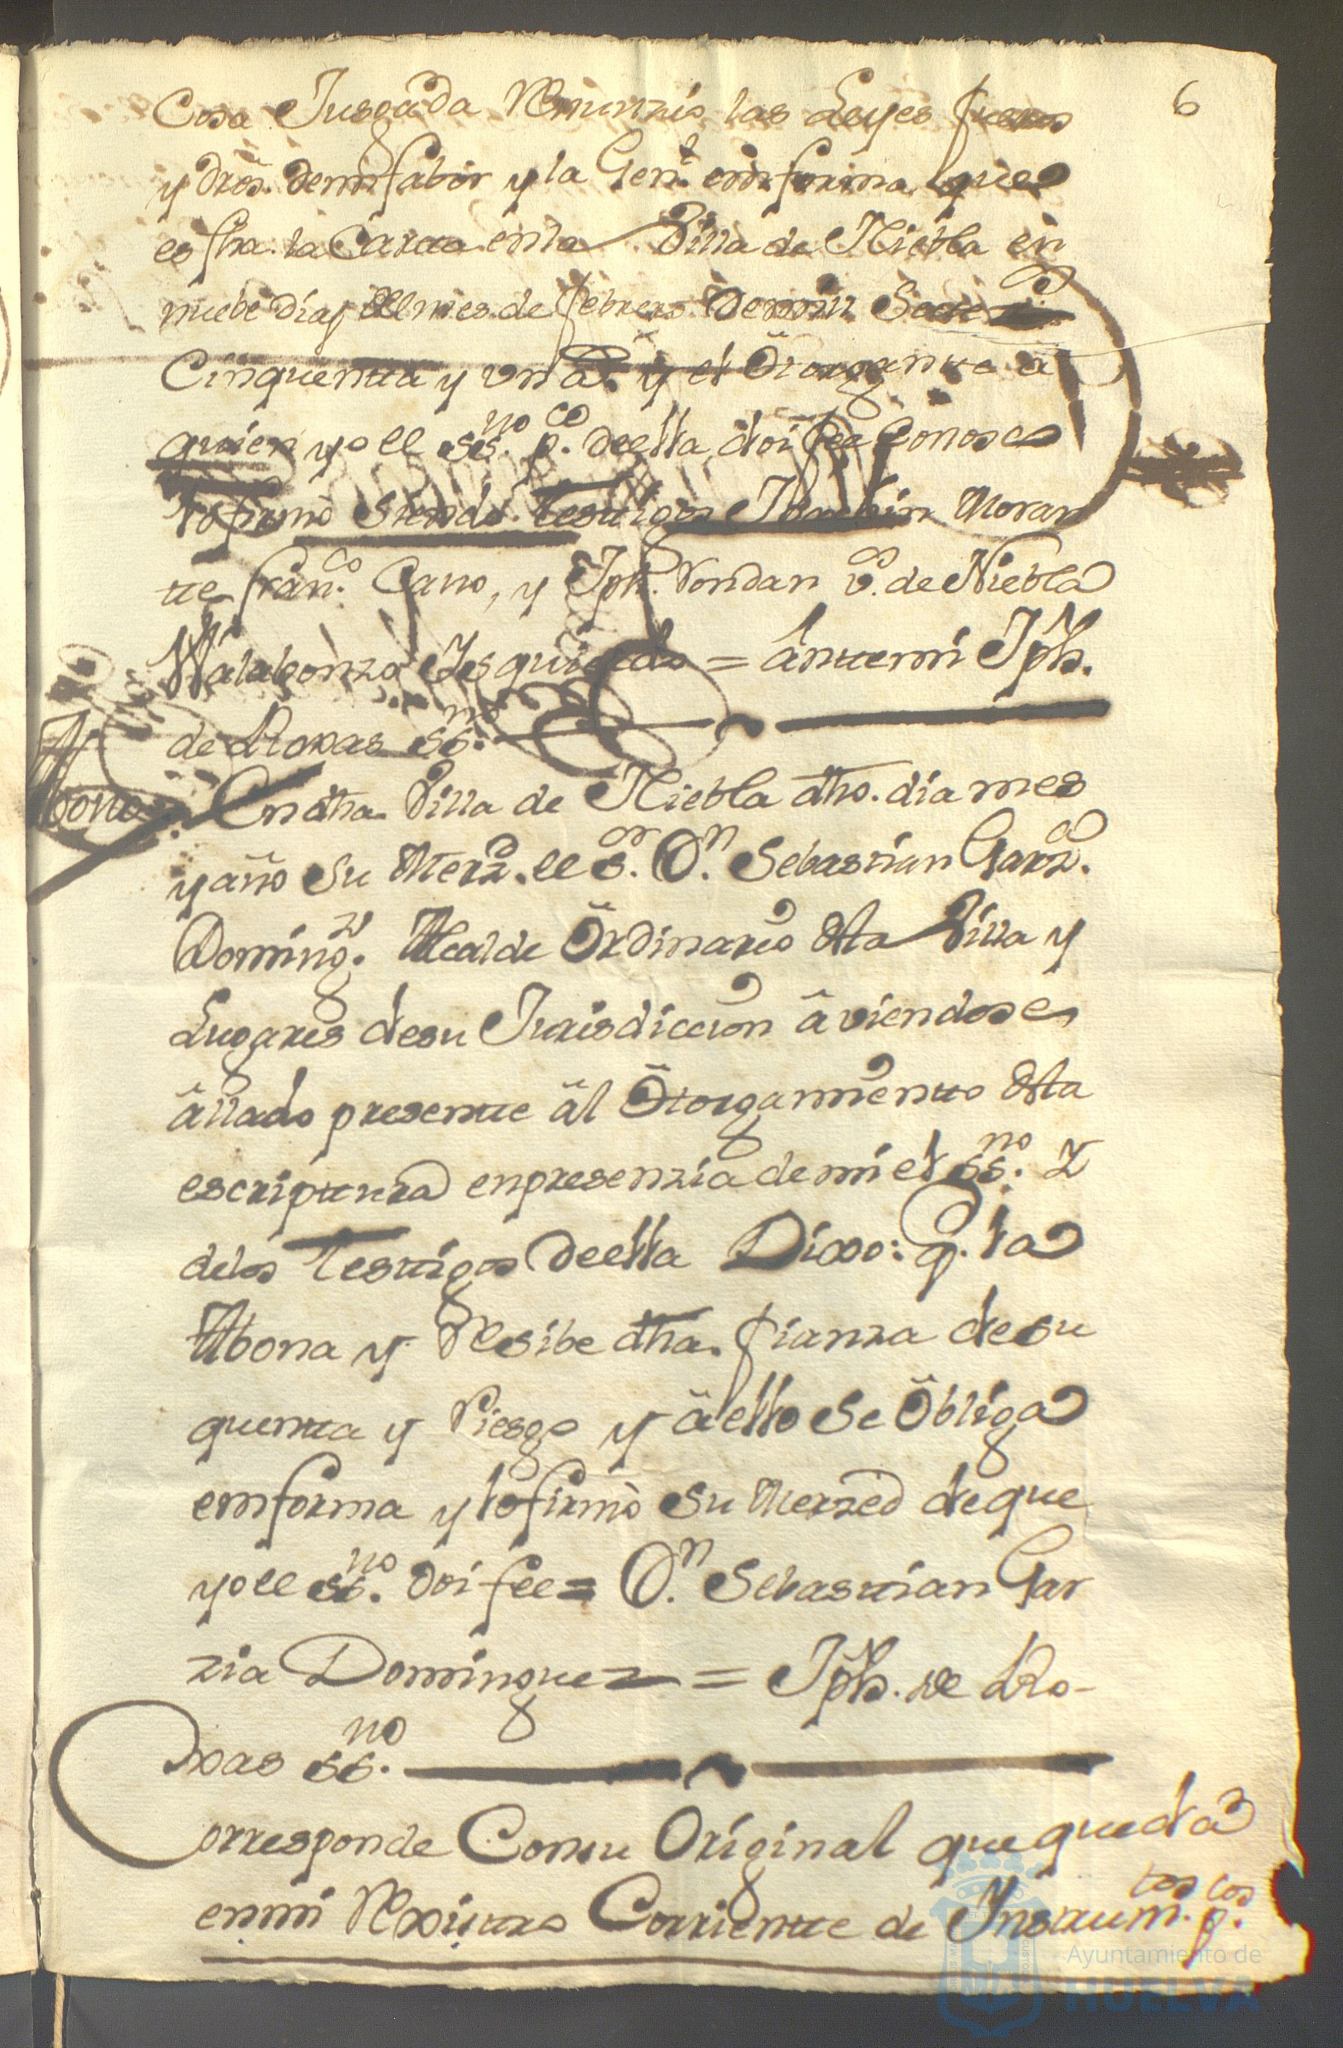 6
Cosa Jusgada Renunzio las Leyes fueros
y dros. demi fabor y la Genl. en forma que
es fha. la Carta en la Villa de Niebla en
nuebe dias del mes de febrero de mill Setezs.
Cinquenta y un a. y el Otorgante a
quien yo el ssno. pco. de ella doi fee Conosco
lo firmo siendo testigos Joachin Moran
te franco. Cano, y Jph. Rondan vos. de Niebla
Walabonzo Isquierdo = Antemi Jph.
de Roxas ssno.
Abono
En dha. Villa de Niebla dho. dia mes
y año su Merzd. el sor. Dn. Sebastian Garza.
Domingz. Alcalde Ordinario desta Villa y
Lugares desu Jurisdiccion aviendose
allado presente al Otorgamiento desta
escriptura enpresenzia de mi el ssno. Y
delos testigos de ella Dixo: q. la
Abona y Resibe dha. fianza de su
quenta y Riesgo y a ello se Obliga
enforma y lo firmo su Merzed de que
yo el ssno. doi fee = Dn. Sebastian Gar
zia Dominguez = Jph. de Ro-
xas ssno.
Corresponde Consu Original que queda
enmi Rexistro Corriente de Instrumtos. pcos.
Ayuntamiento de
HUELVA